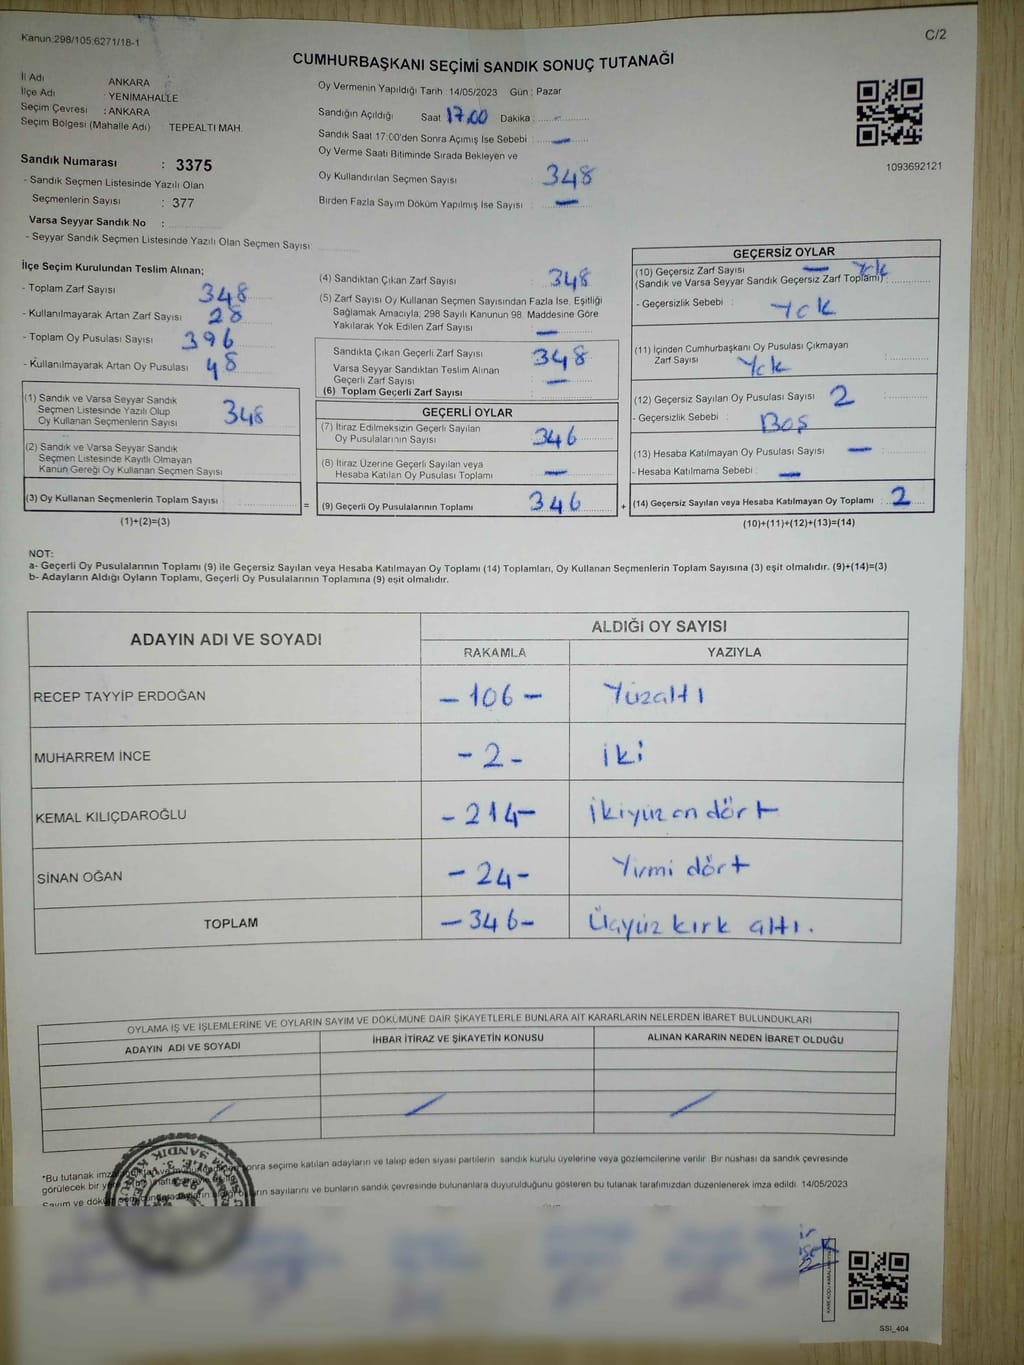 Kanun:298/105:6271/18-1
C/2
CUMHURBAŞKANI SEÇİMİ SANDIK SONUÇ TUTANAĞI
İl Adı ANKARA
İlçe Adı : YENİMAHALLE
Seçim Çevresi : ANKARA
Seçim Bölgesi (Mahalle Adı) : TEPEALTI MAH.
Sandık Numarası : 3375
- Sandık Seçmen Listesinde Yazılı Olan
Seçmenlerin Sayısı : 377
Varsa Seyyar Sandık No :
- Seyyar Sandık Seçmen Listesinde Yazılı Olan Seçmen Sayısı:
Oy Vermenin Yapıldığı Tarih :14/05/2023 Gün : Pazar
Sandığın Açıldığı Saat 17.00 Dakika: -
Sandık Saat 17:00'den Sonra Açımış İse Sebebi : -
Oy Verme Saati Bitiminde Sırada Bekleyen ve
Oy Kullandırılan Seçmen Sayısı : 348
Birden Fazla Sayım Döküm Yapılmış İse Sayısı : -
1093692121
İlçe Seçim Kurulundan Teslim Alınan;
- Toplam Zarf Sayısı 348
- Kullanılmayarak Artan Zarf Sayısı 28
- Toplam Oy Pusulası Sayısı 396
- Kullanılmayarak Artan Oy Pusulası 48
(1) Sandık ve Varsa Seyyar Sandık
Seçmen Listesinde Yazılı Olup
Oy Kullanan Seçmenlerin Sayısı 348
(2) Sandık ve Varsa Seyyar Sandık
Seçmen Listesinde Kayıtlı Olmayan
Kanun Gereği Oy Kullanan Seçmen Sayısı
(3) Oy Kullanan Seçmenlerin Toplam Sayısı
(1)+(2)=(3)
(4) Sandıktan Çıkan Zarf Sayısı : 348
(5) Zarf Sayısı Oy Kullanan Seçmen Sayısından Fazla İse, Eşitliği
Sağlamak Amacıyla; 298 Sayılı Kanunun 98. Maddesine Göre
Yakılarak Yok Edilen Zarf Sayısı : -
Sandıkta Çıkan Geçerli Zarf Sayısı : 348
Varsa Seyyar Sandıktan Teslim Alınan
Geçerli Zarf Sayısı : -
(6) Toplam Geçerli Zarf Sayısı :
GEÇERLİ OYLAR
(7) İtiraz Edilmeksizin Geçerli Sayılan
Oy Pusulalarının Sayısı : 346
(8) İtiraz Üzerine Geçerli Sayılan veya
Hesaba Katılan Oy Pusulası Toplamı : -
= (9) Geçerli Oy Pusulalarının Toplamı : 346
GEÇERSİZ OYLAR
(10) Geçersiz Zarf Sayısı - Yok
(Sandık ve Varsa Seyyar Sandık Geçersiz Zarf Toplamı) :
- Geçersizlik Sebebi : Yok
(11) İçinden Cumhurbaşkanı Oy Pusulası Çıkmayan
Zarf Sayısı Yok
(12) Geçersiz Sayılan Oy Pusulası Sayısı : 2
- Geçersizlik Sebebi : Boş
(13) Hesaba Katılmayan Oy Pusulası Sayısı : -
- Hesaba Katılmama Sebebi : -
+ (14) Geçersiz Sayılan veya Hesaba Katılmayan Oy Toplamı : 2
(10)+(11)+(12)+(13)=(14)
NOT:
a- Geçerli Oy Pusulalarının Toplamı (9) ile Geçersiz Sayılan veya Hesaba Katılmayan Oy Toplamı (14) Toplamları, Oy Kullanan Seçmenlerin Toplam Sayısına (3) eşit olmalıdır. (9)+(14)=(3)
b- Adayların Aldığı Oyların Toplamı, Geçerli Oy Pusulalarının Toplamına (9) eşit olmalıdır.
ADAYIN ADI VE SOYADI ALDIĞI OY SAYISI
RAKAMLA YAZIYLA
RECEP TAYYİP ERDOĞAN -106- Yüzaltı
MUHARREM İNCE -2- iki
KEMAL KILIÇDAROĞLU -214- ikiyüz on dört
SİNAN OĞAN -24- Yirmi dört
TOPLAM -346- Üçyüz kırk altı.
OYLAMA İŞ VE İŞLEMLERİNE VE OYLARIN SAYIM VE DÖKÜMÜNE DAİR ŞİKAYETLERLE BUNLARA AİT KARARLARIN NELERDEN İBARET BULUNDUKLARI
ADAYIN ADI VE SOYADI İHBAR İTİRAZ VE ŞİKAYETİN KONUSU ALINAN KARARIN NEDEN İBARET OLDUĞU
*Bu tutanak sonra seçime katılan adayların ve talep eden siyasi partilerin sandık kurulu üyelerine veya gözlemcilerine verilir. Bir nüshası da sandık çevresinde
görülecek bir sayılarını ve bunların sandık çevresinde bulunanlara duyurulduğunu gösteren bu tutanak tarafımızdan düzenlenerek imza edildi. 14/05/2023
SSİ_404